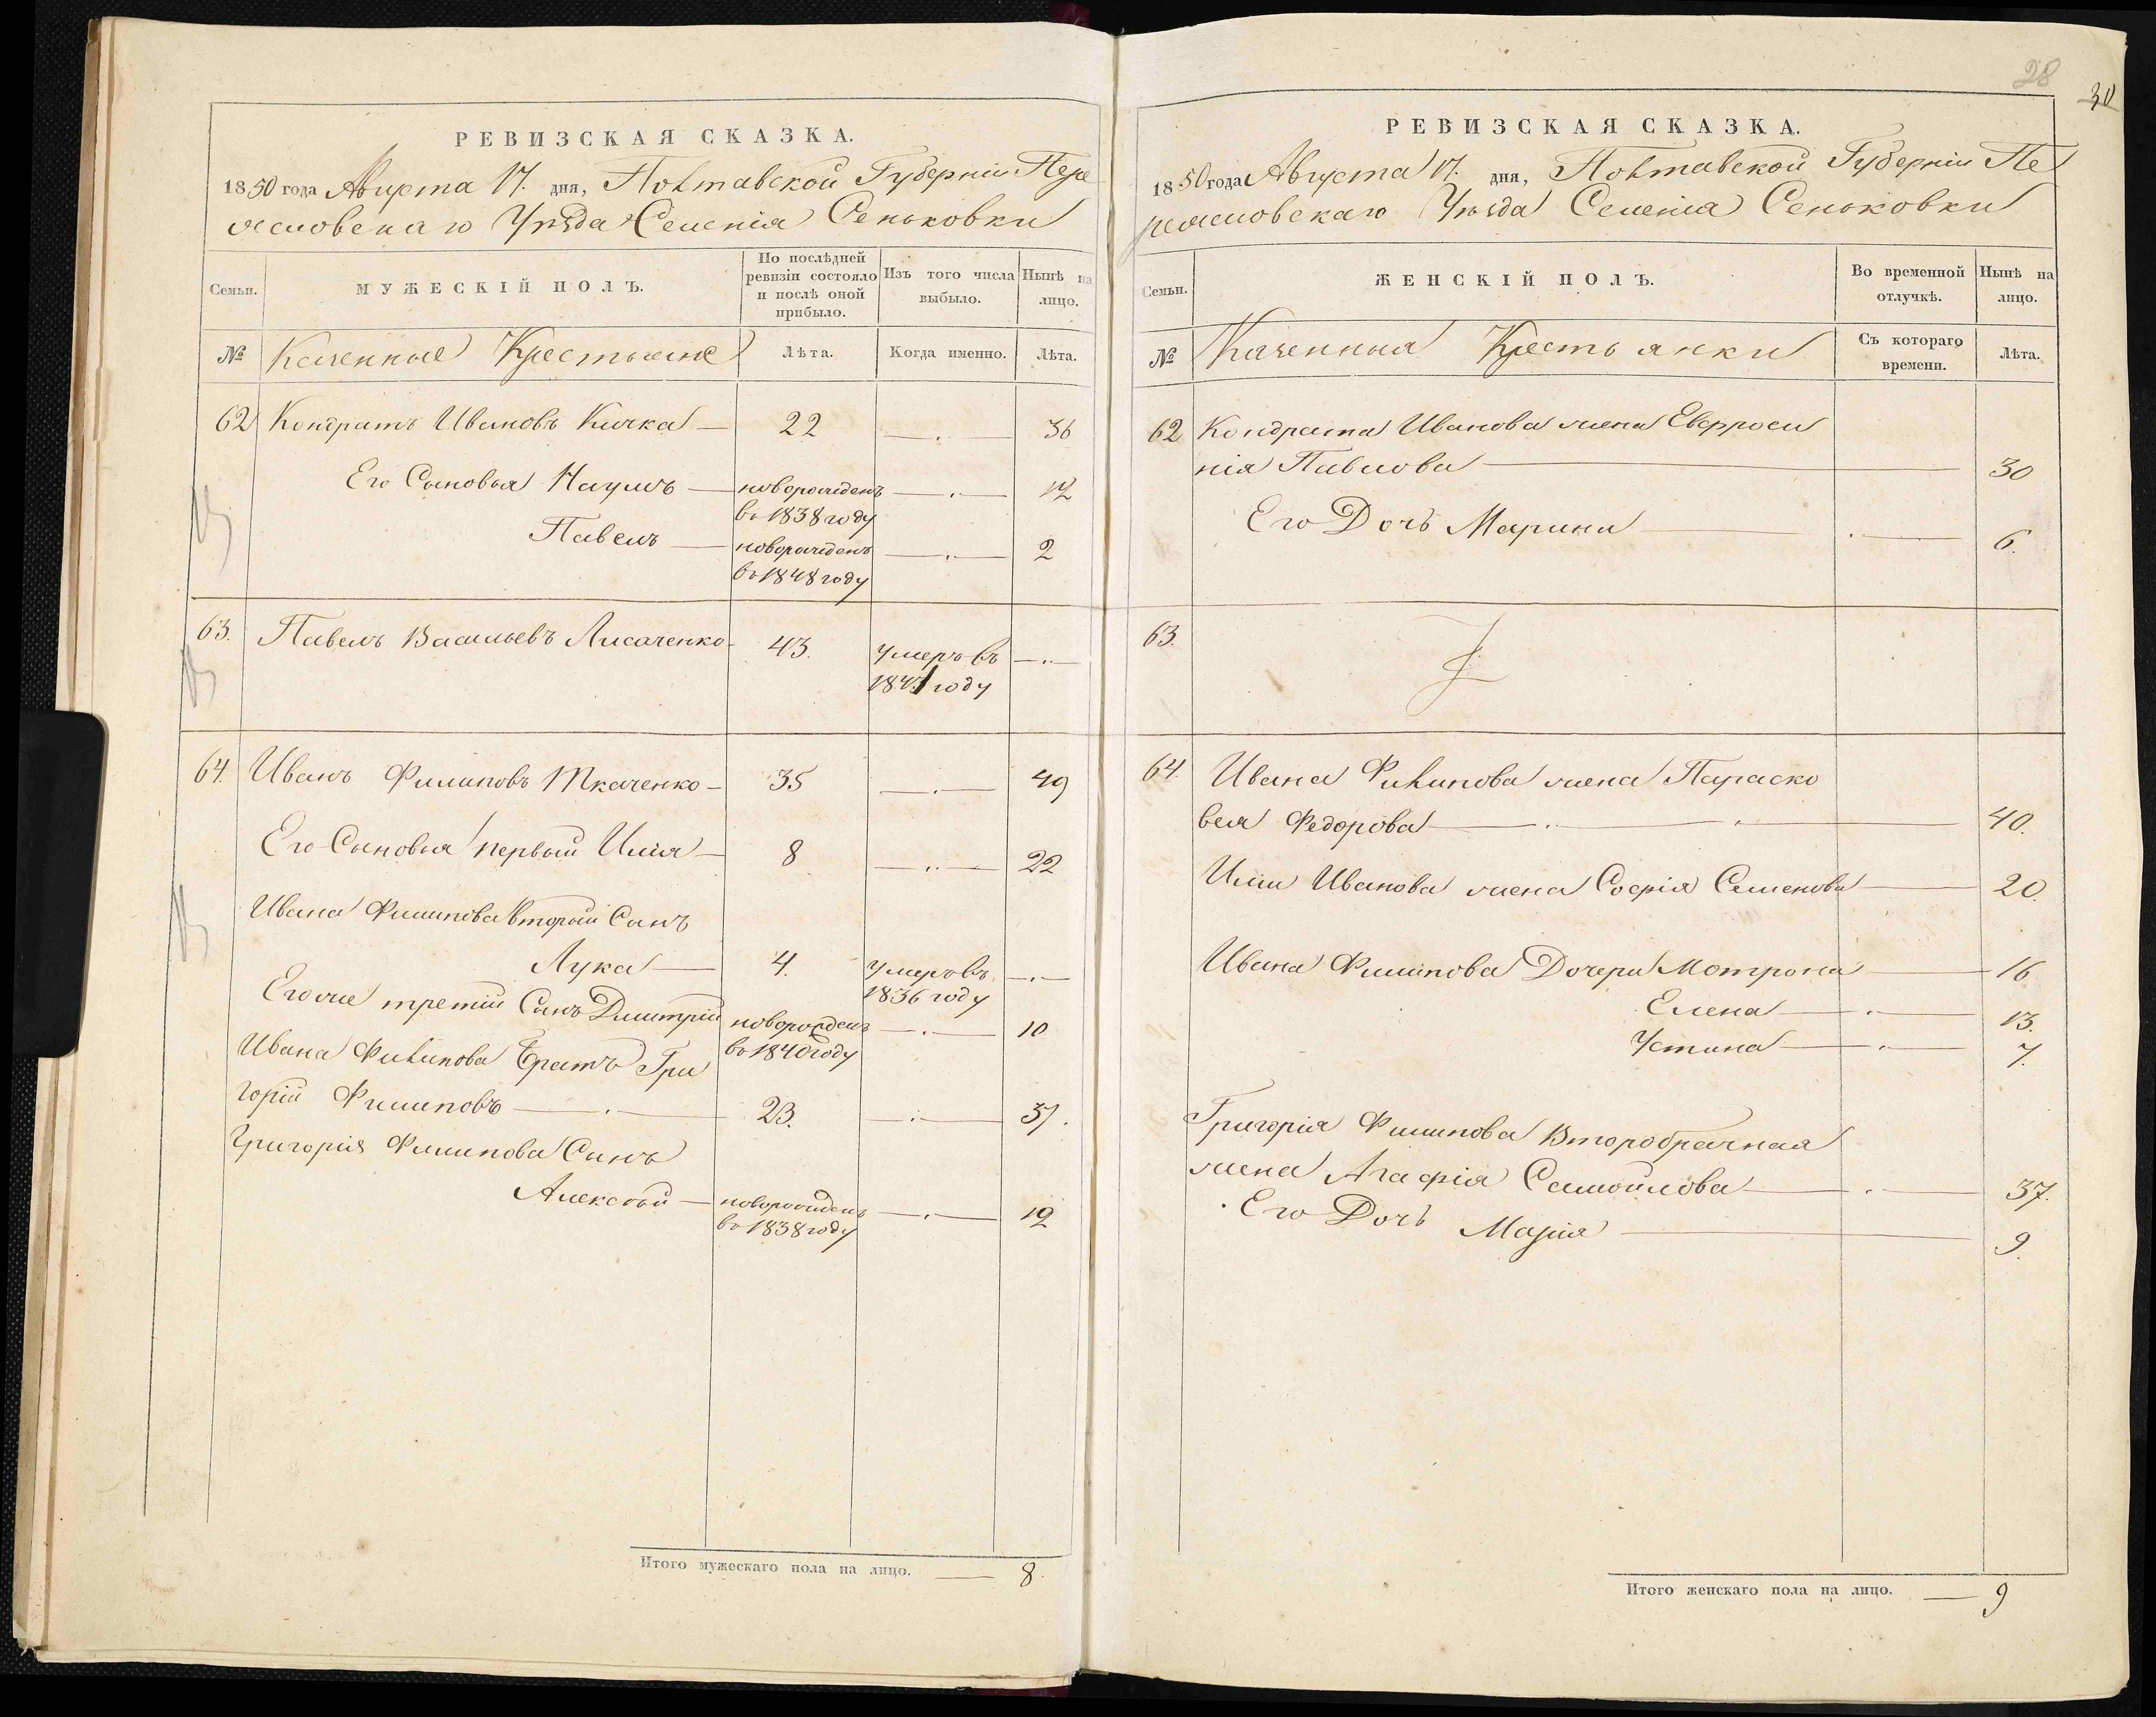 РЕВИЗСКАЯ СКАЗКА.
1850 года Августа 17. дня, Полтавской Губерніи Пере
ясловскаго Уѣзда Селенія Сеньковки
Семьи.
МУЖЕСКІЙ ПОЛЪ.
По послѣдней
ревизіи состояло
и послѣ оной
прибыло.
Изъ того числа
выбыло.
Нынѣ на
лицо.
№ Казенные Крестьяне Лѣта. Когда именно. Лѣта.
62 Кондратъ Ивановъ Кичка 22 36
Его Сыновья Наумъ новорожденъ 12
въ 1838 году
Павелъ новорожденъ 2
въ 1848 году
63. Павелъ Васильевъ Лисаченко 43. умеръ въ
году
64. Иванъ Филиповъ Ткаченко 35 49
Его Сыновья первый Илія 8 22
Ивана Филипова вторый Сынъ
Лука 4. умеръ въ
1836 году
Его же третій Сынъ Дмитрій новорожденъ 10
въ 1840 году
Ивана Филипова Братъ Гри
горій Филиповъ 23. 37.
Григорія Филипова Сынъ
Алексѣй новорожденъ 12
въ 1838 году
Итого мужескаго пола на лицо. 8.
28
30
РЕВИЗСКАЯ СКАЗКА.
1850 года Августа 17. дня, Полтавской Губерніи Пе
реясловскаго Уѣзда Селенія Сеньковки
Семьи.
ЖЕНСКІЙ ПОЛЪ.
Во временной
отлучкѣ.
Нынѣ на
лицо.
№ Казенныя Крестьянки
Съ котораго
времени.
Лѣта.
62 Кондрата Иванова жена Евфроси
нія Павлова 30
Его Дочь Марина 6.
63.
64. Ивана Филипова жена Параско
вея Федорова 40.
Иліи Иванова жена Софія Семенова 20.
Ивана Филипова Дочери Мотрона 16
Елена 13.
Устина 7.
Григорія Филипова Второбрачная
жена Агафія Самойлова 37.
Его Дочь Марія 9.
Итого женскаго пола на лицо. 9